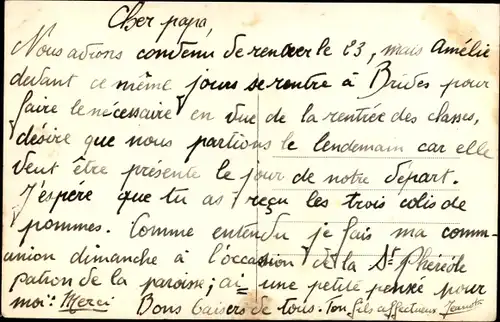 Cher papa,
Nous avions convenu de rentrer le 23, mais Amélie
devant ce même jours se rentre à Brides pour
faire le nécessaire en vue de la rentrée des classes,
désire que nous partions le lendemain car elle
veut être présente le jour de notre départ.
J'espère que tu as reçu les trois colis de
pommes. Comme entendu je fais ma comm-
union dimanche à l'occasion de la St
patron de la paroisse; ai une petite pensé pour
moi. Merci Bons baisers de tous. Ton fils affectueux